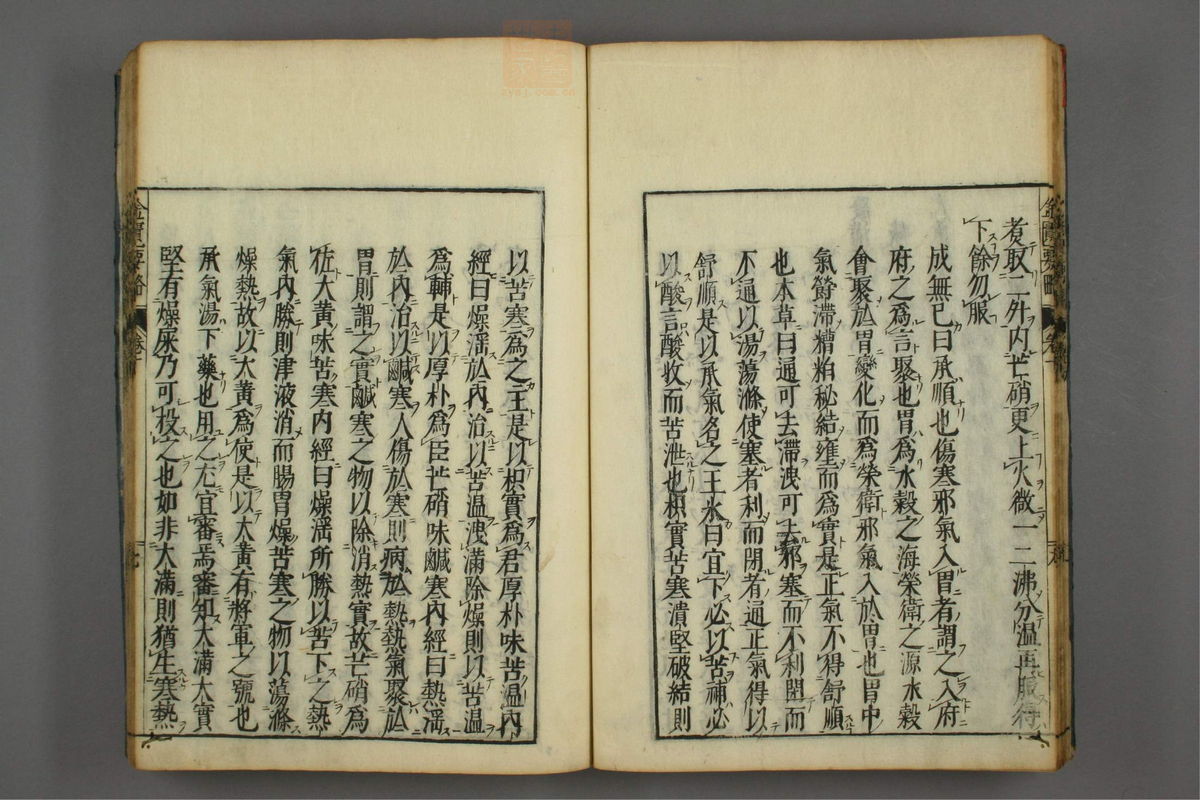 煮取二升内芒硝更上火微一二沸分温再服得
下餘勿服
成無已曰承順也傷寒邪氣入胃者謂之入府
府之爲言聚也胃爲水穀之海榮衛之源水穀
會聚於胃變化而爲榮衛邪氣入於胃也胃中
氣欝滯糟粕秘結壅而爲實是正氣不得舒順
也本草曰通可去滯洩可去邪塞而不利閉而
不通以湯蕩滌使塞者利而閉者通正氣得以
舒順是以承氣名之王氷曰宜下必以苦補必
以酸言酸收而苦泄也枳實苦寒潰堅破結則
以苦寒爲之主是以枳實爲君厚朴味苦温内
經曰燥淫於内治以苦温洩滿除燥則以苦温
爲輔是以厚朴爲臣芒硝味鹹寒内經曰熱淫
於内治以鹹寒人傷於寒則病於熱熱氣聚於
胃則謂之實鹹寒之物以除消熱實故芒硝爲
佐大黄味苦寒内經曰燥淫所勝以苦下之熱
氣内勝則津液消而腸胃燥苦寒之物以蕩滌
燥熱故以大黄爲使是以大黄有將軍之號也
承氣湯下藥也用之尤宜審焉審知大滿大實
堅有燥屎乃可投之也如非大滿則猶生寒熱
金匱要略
金匱要略